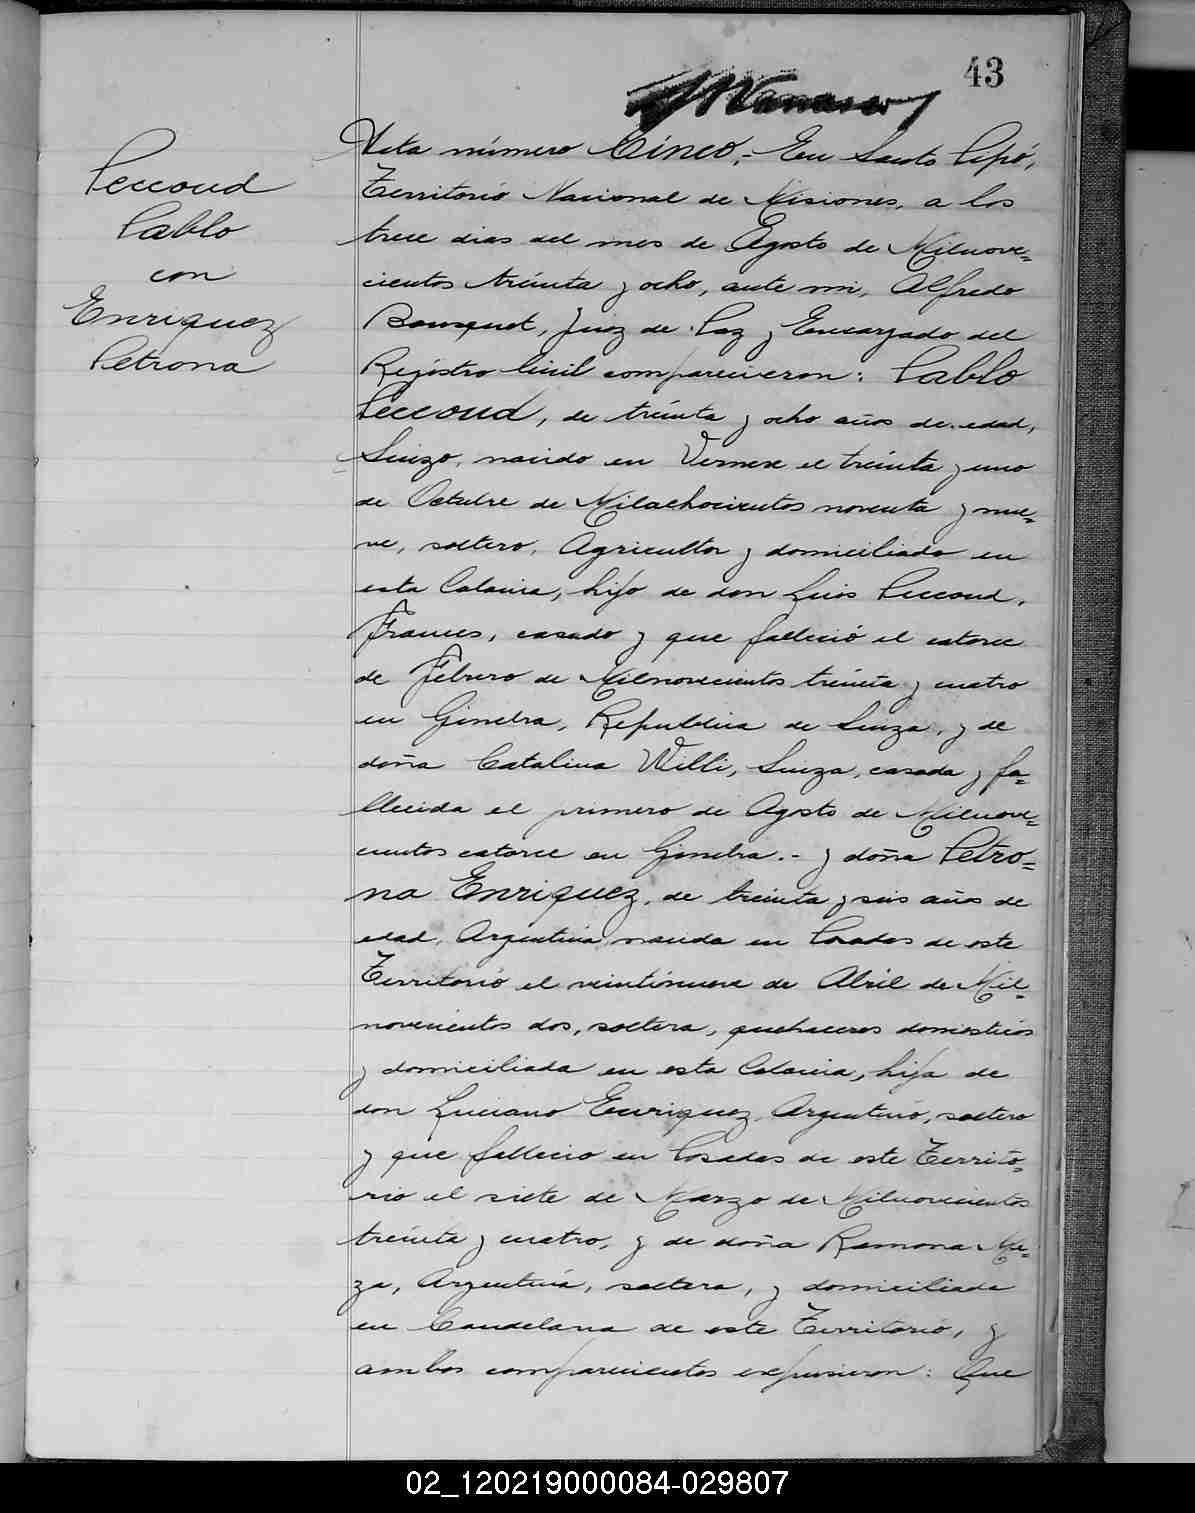 43
Peccoud
Pablo
con
Enriquez
Petrona
Acta número Cinco.- En Santo Pipó,
Territorio Nacional de Misiones, a los
trece dias del mes de Agosto de Milnove=
cientos treinta y ocho, ante mi, Alfredo
Bousquet, Juez de Paz y Encargado del
Registro Civil comparecieron: Pablo
Peccoud, de treinta y ocho años de edad,
Suizo, nacido en el treinta y uno
de Octubre de Milochocientos noventa y nue=
ve, soltero, Agricultor y domiciliado en
esta Colonia, hijo de don Luis Peccoud,
Frances, casado y que falleció el catorce
de Febrero de Milnovecientos treinta y cuatro
en Ginebra, Republica de Suiza, y de
doña Catalina Willi, Suiza, casada y fa=
llecida el primero de Agosto de Milnove=
cientos catorce en Ginebra.- y doña Petro=
na Enriquez, de treinta y seis años de
edad, Argentina, nacida en Posadas de este
Territorio el veintinueve de Abril de Mil=
novecientos dos, soltera, quehaceres domesticos
y domiciliada en esta Colonia, hija de
don Luciano Enriquez, Argentino, soltero
y que fallecio en Posadas de este Territo=
rio el siete de Marzo de Milnovecientos
treinta y cuatro, y de doña Ramona Me=
za, Argentina, soltera, y domiciliada
en Candelaria de este Territorio, y
ambos comparecientos expusieron: Que
02_120219000084-029807